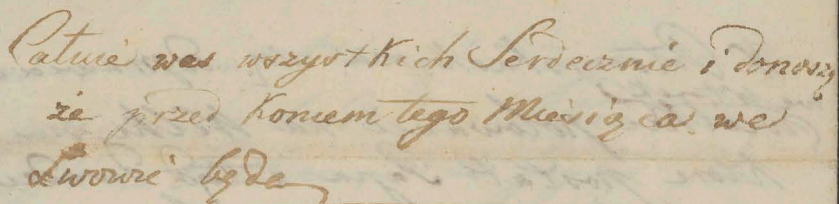 Całuie was wszystkich Serdecznie i donoszę
że przed koncem tego Miesiąca we
Lwowie będę